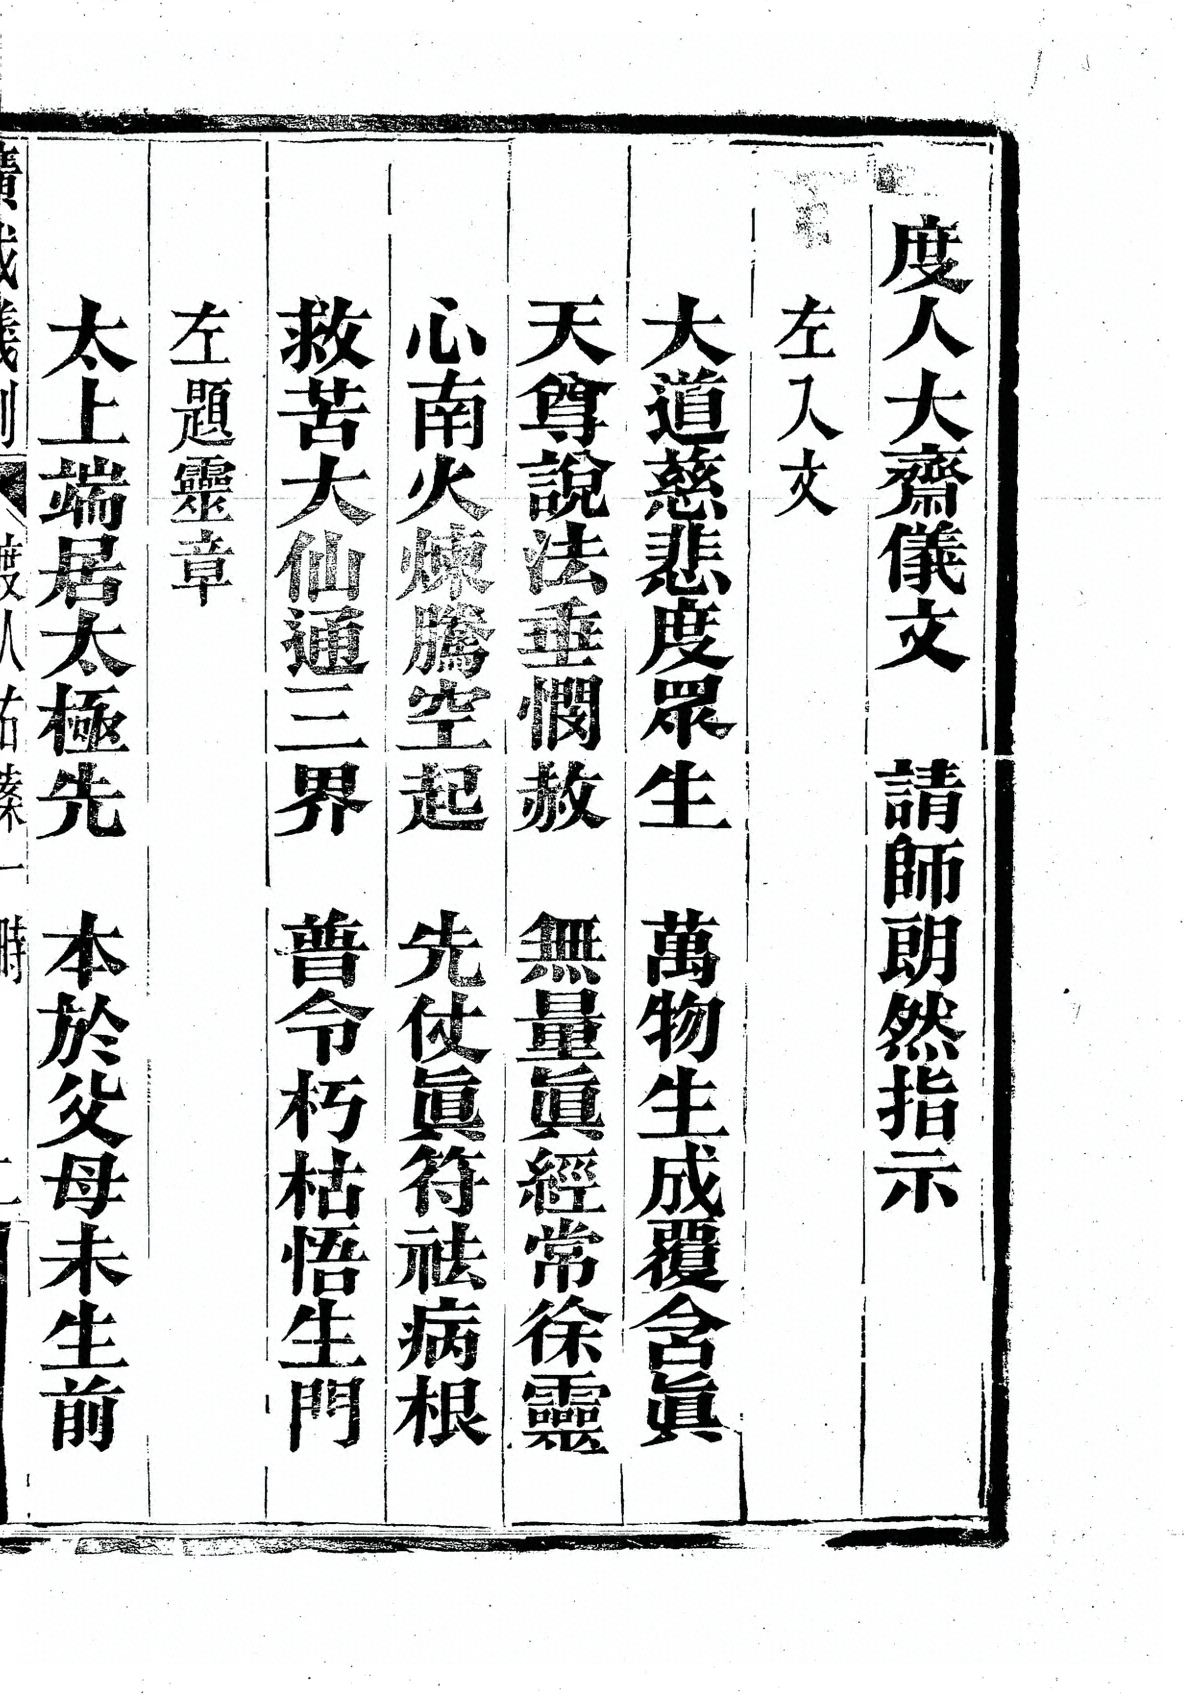 度人大齋儀文　請師朗然指示
左入文
大道慈悲度眾生　萬物生成覆含眞
天尊說法垂憫赦　無量眞經常徐靈
心南火煉騰空起　先仗眞符祛病根
救苦大仙通三界　普令朽枯悟生門
左題靈章
太上端居太極先　本於父母未生前